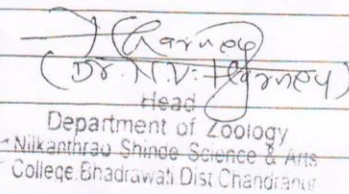 (Dr. N.V. Harney)
Head
Department of Zoology
Nilkanthrao Shinde Science & Arts
College, Bhadrawati Dist. Chandrapur